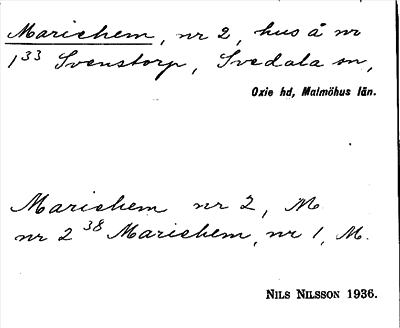 Mariehem, nr 2, hus å nr
1³³ Svenstorp, Svedala sn,
Oxie hd, Malmöhus län.
Mariehem nr 2, M
nr 2³⁸ Mariehem, nr 1, M.
NILS NILSSON 1936.